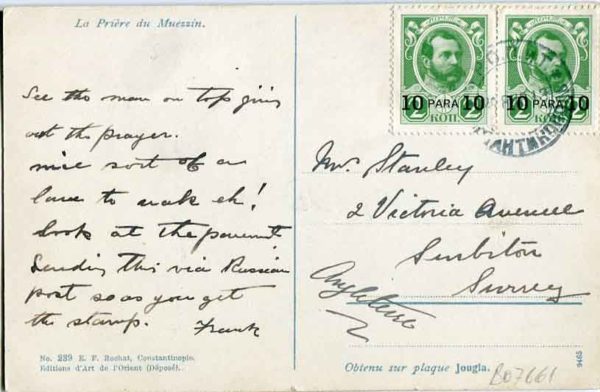 La Prière du Muezzin.
See the man on top giving
out the prayer.
nice sort of a
lane to walk eh!
Look at the
Sending this via Russian
post so as you get
the stamp. Frank
No. 239 E. F. Rochat, Constantinople.
Editions d'Art de l'Orient (Déposé).
10 PARA 10
2 КОП 2
10 PARA 10
2 КОП 2
Mr. Stanley
2 Victoria Avenue
Surbiton
Surrey
Angleterre
Obtenu sur plaque Jougla.
9465
B07661